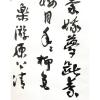 娥夢斷秦
月年々柳色
樂游原上清